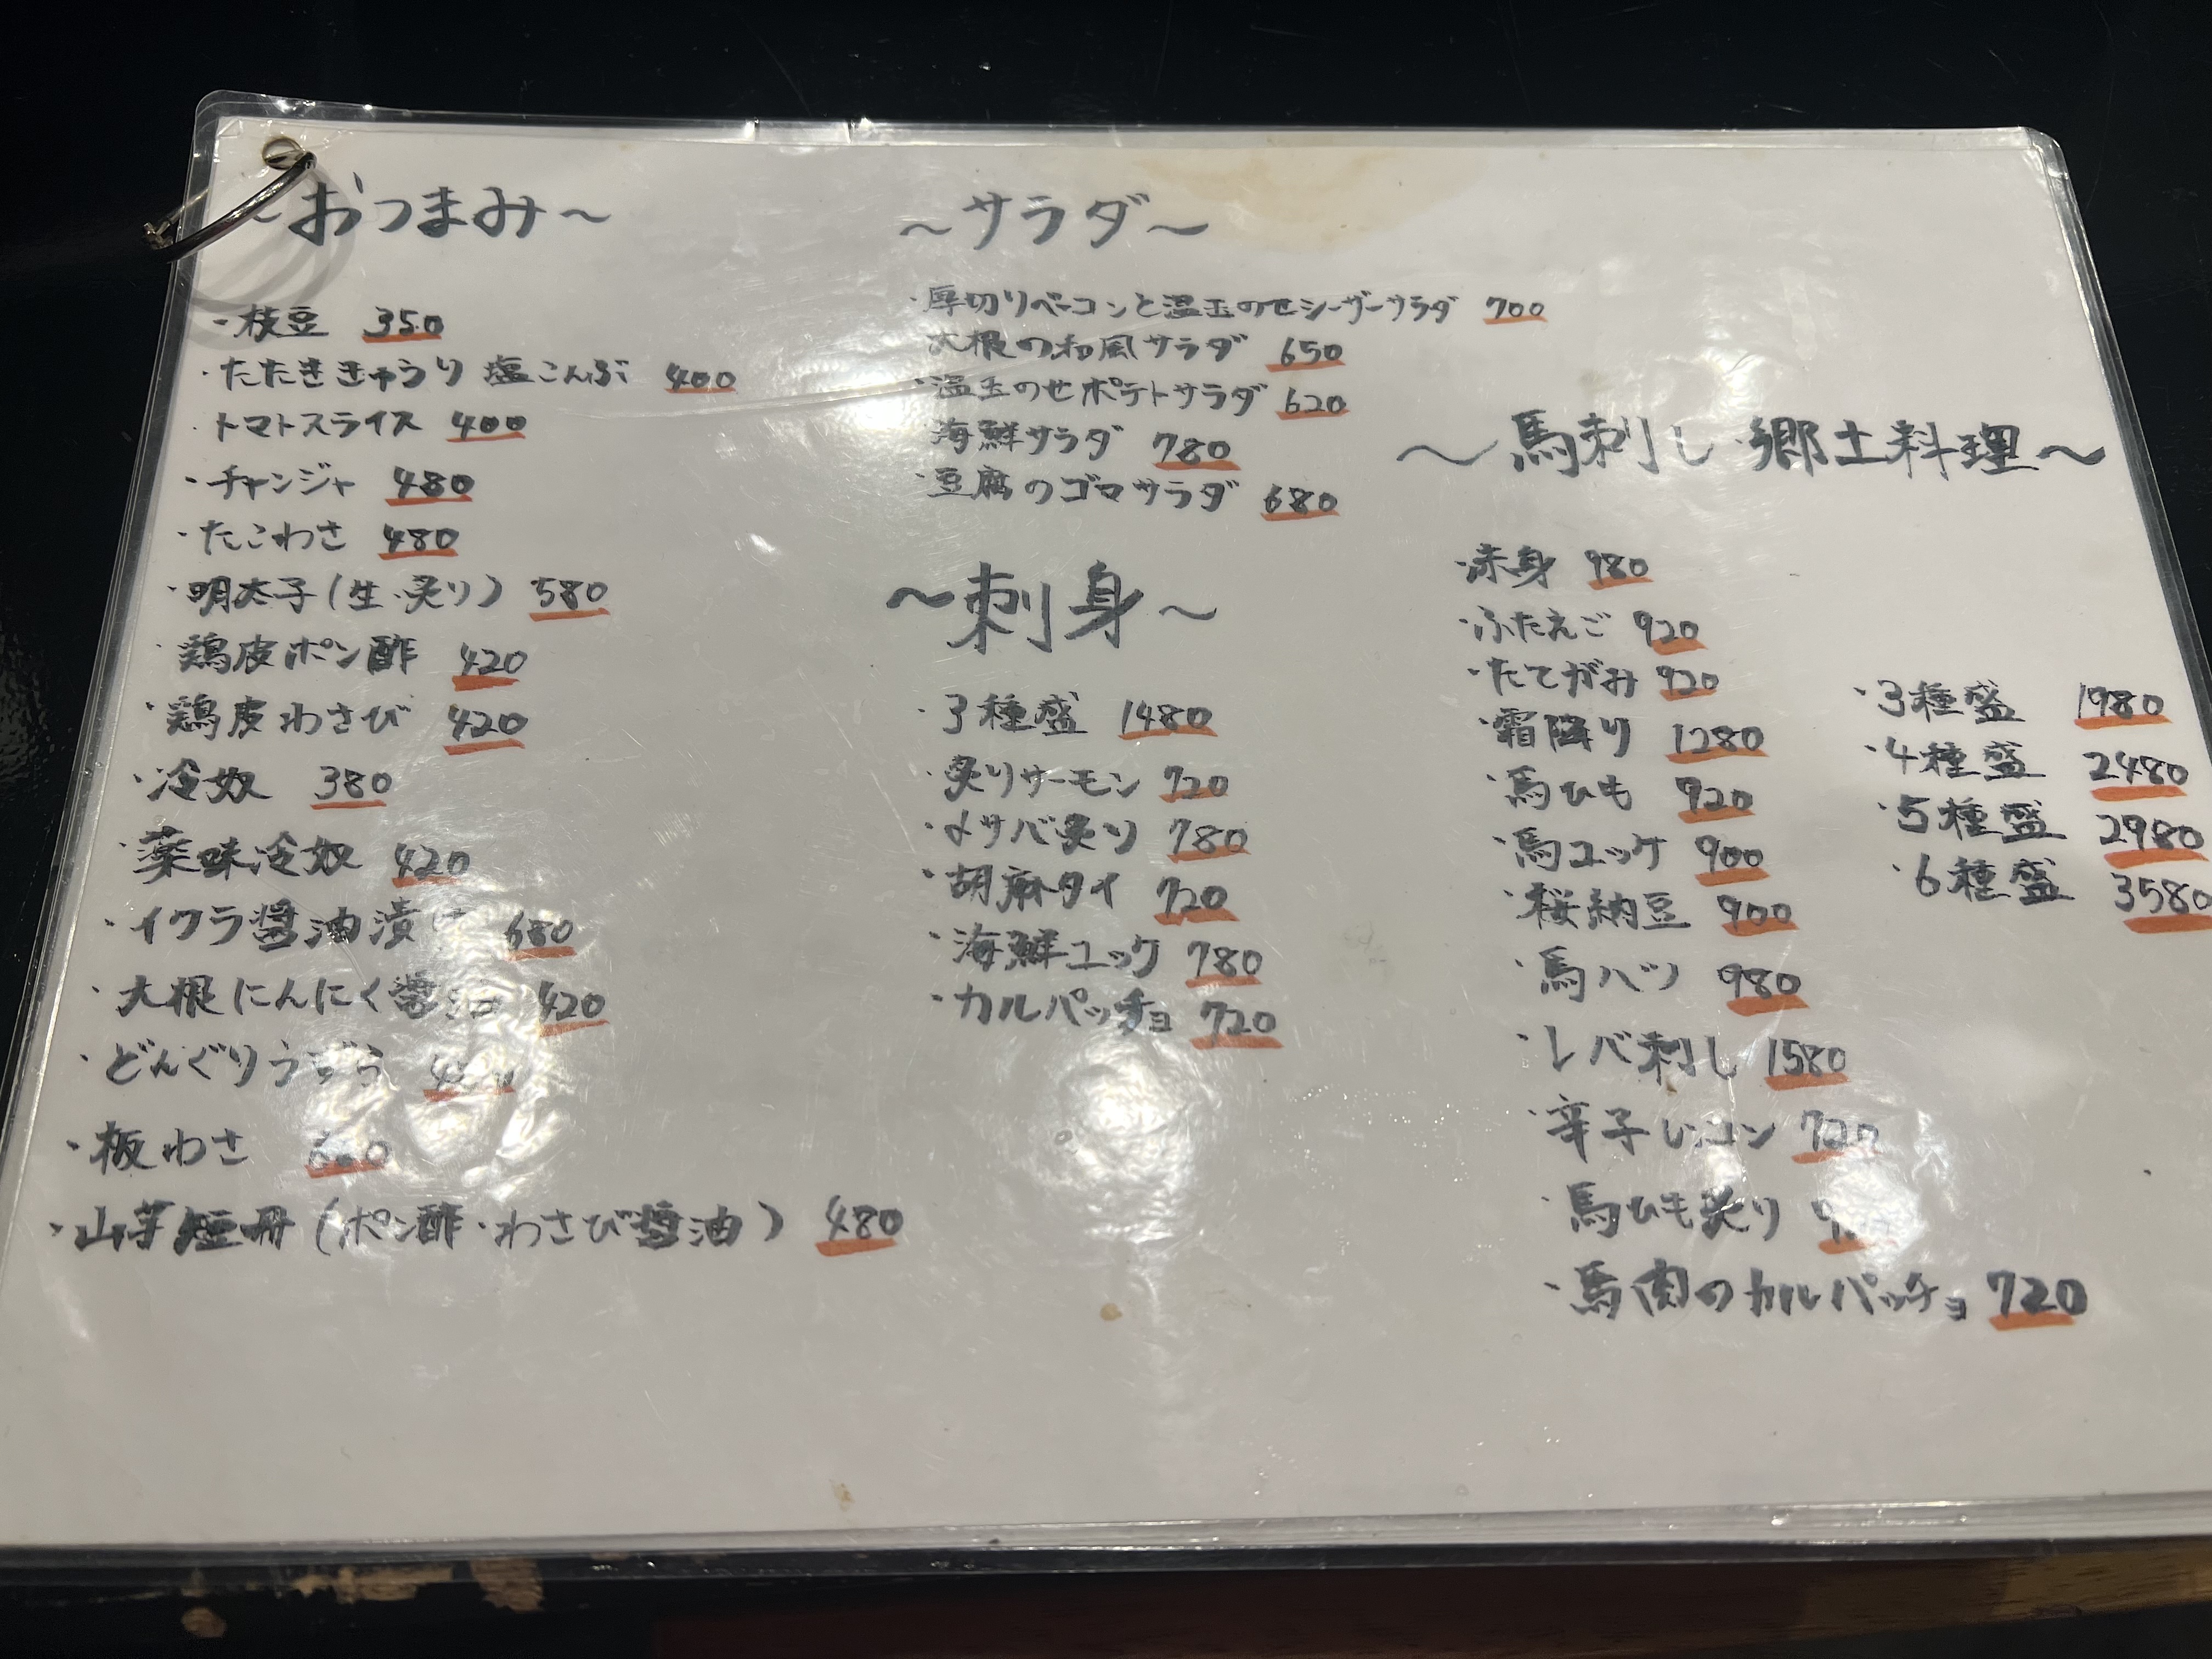 ～おつまみ～
・枝豆 350
・たたききゅうり 塩こんぶ 400
・トマトスライス 400
・チャンジャ 480
・たこわさ 480
・明太子(生・炙り) 580
・鶏皮ポン酢 420
・鶏皮わさび 420
・冷奴 380
・薬味冷奴 420
・イクラ醤油漬け 680
・大根にんにく醤油 420
・どんぐり
・板わさ
・山芋短冊(ポン酢・わさび醤油) 480
～サラダ～
・厚切りベーコンと温玉のせシーザーサラダ 700
・大根の和風サラダ 650
・温玉のせポテトサラダ 620
・海鮮サラダ 780
・豆腐のゴマサラダ 680
～刺身～
・3種盛 1480
・炙りサーモン 720
・〆サバ炙り 780
・胡麻タイ 720
・海鮮ユッケ 780
・カルパッチョ 720
～馬刺し・郷土料理～
・赤身 980
・ふたえご 920
・たてがみ 920
・霜降り 1280
・馬ひも 920
・馬ユッケ 900
・桜納豆 900
・馬ハツ 980
・レバ刺し 1580
・辛子レンコン 720
・馬ひも炙り
・馬肉のカルパッチョ 720
・3種盛 1980
・4種盛 2480
・5種盛 2980
・6種盛 3580